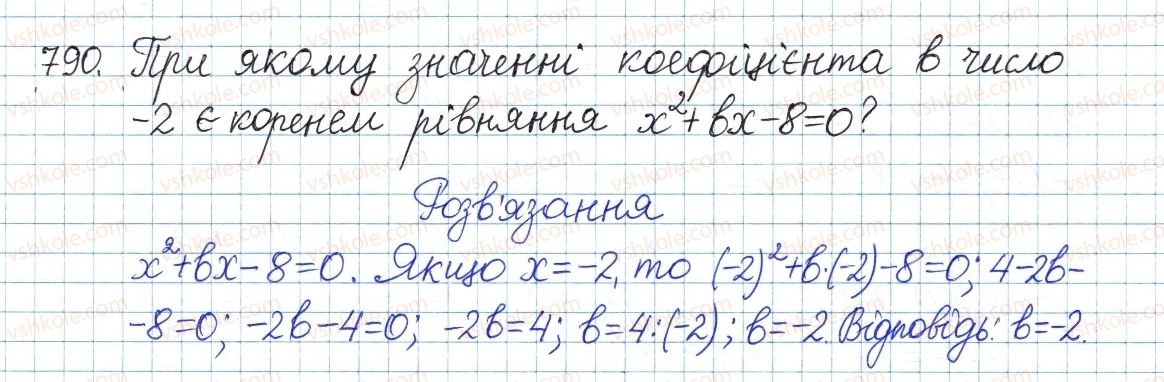 790. При якому значенні коефіцієнта в число
-2 є коренем рівняння x²+вx-8=0?
Розв'язання
x²+вx-8=0. Якщо x=-2, то (-2)²+в·(-2)-8=0; 4-2в-
-8=0; -2в-4=0; -2в=4; в=4:(-2); в=-2. Відповідь: в=-2.